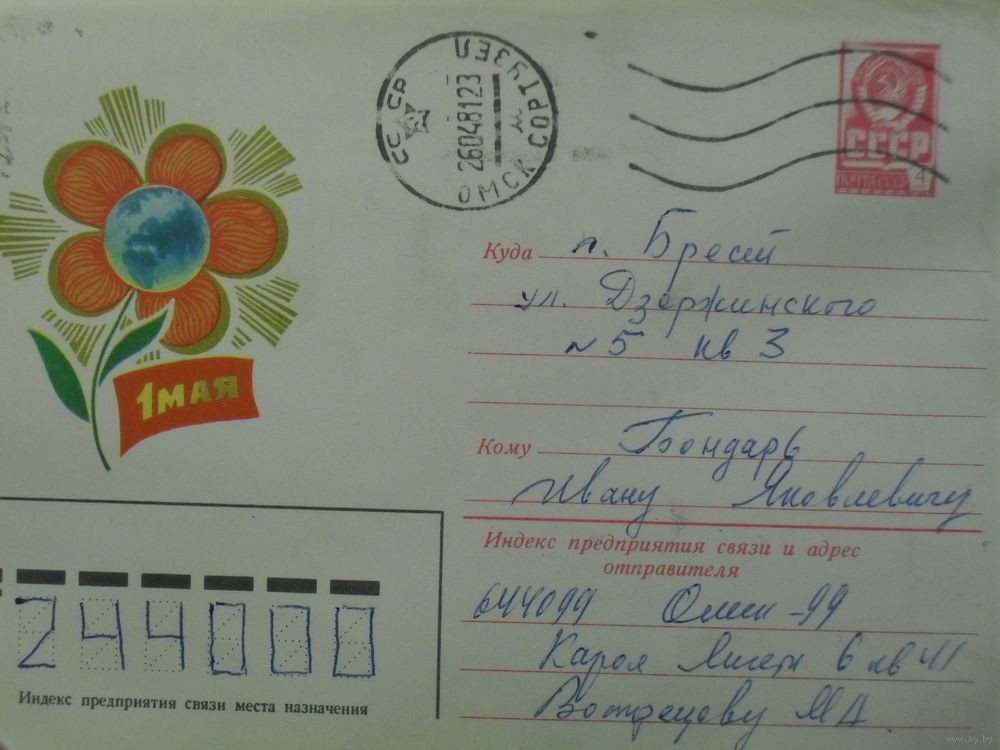 СССР
ОМСК СОРТУЗЕЛ
26048123
СССР
ПОЧТА СССР
4
1 МАЯ
Куда г. Брест
ул. Дзержинского
№ 5 кв 3
Кому Бондарь
Ивану Яковлевичу
Индекс предприятия связи и адрес
отправителя
644099 Омск-99
Карла Либкн 6 кв 41
Вотрецову МА
244000
Индекс предприятия связи места назначения
www.ay.by